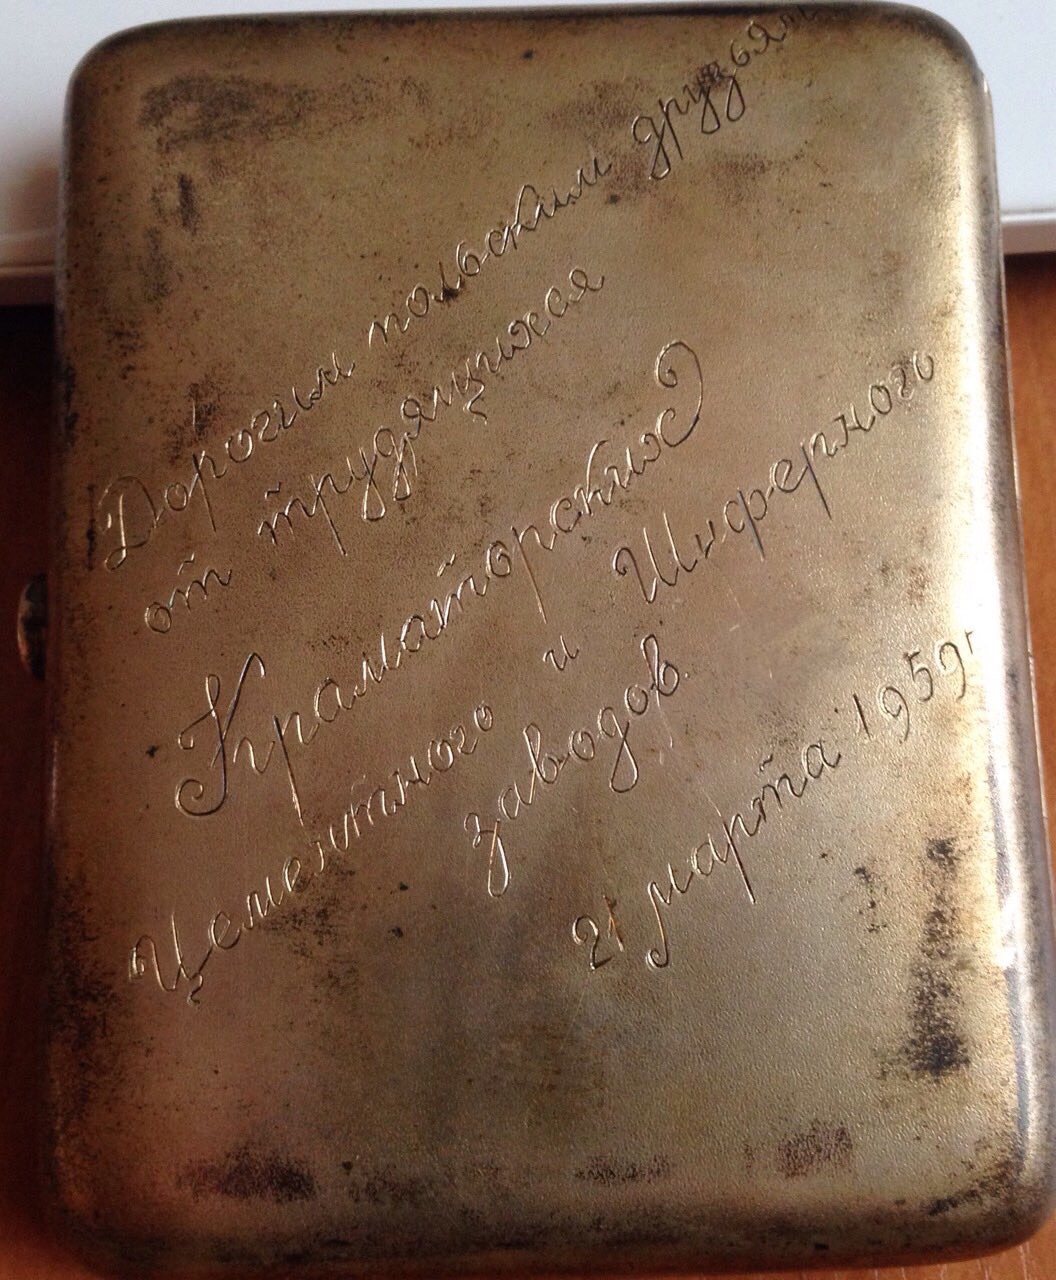 Дорогим польским друзьям
от трудящихся
Краматорских
Цементного и Шиферного
заводов.
21 марта 1959г